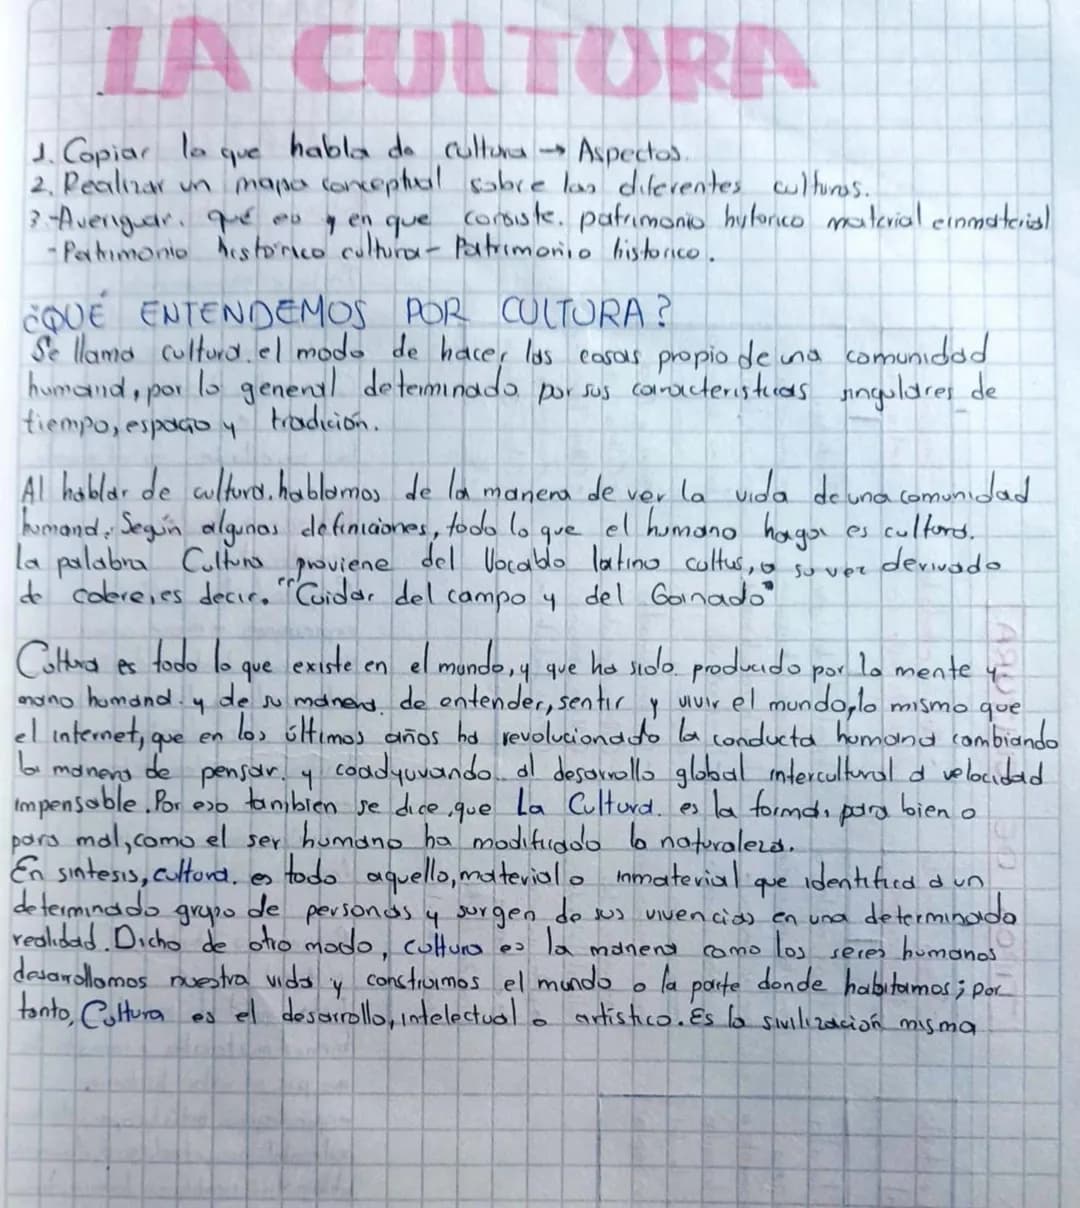 LA CULTURA
1. Copiar lo que habla da cultura → Aspectos.
2. Realizar un mapa conceptual sobre las diferentes culturas.
3.-Averiguar. qué es y en que consiste. patrimonio hytorico material e inmaterial
- Patrimonio historico cultura - Patrimonio historico.
¿QUÉ ENTENDEMOS POR CULTURA?
Se llama cultura. el modo de hacer las cosas propio de una comunidad
humana, por lo general determinado por sus caracteristicas singulares de
tiempo, espacio y tradición.
Al hablar de cultura. hablamos de la manera de ver la vida de una comunidad
humana. Según algunas definiciones, todo lo que el humano haga es cultura.
la palabra Cultura proviene del Vocablo latino cultus, a su vez derivado
de colere, es decir. "Cuidar del campo y del Ganado"
Cultura es todo lo que existe en el mundo, y que ha sido producido por la mente y
mano humana. y de su manera de entender, sentir y vivir el mundo, lo mismo que
el internet, que en los últimos años ha revolucionado la conducta humana cambiando
la manera de pensar. y coadyuvando al desarrollo global intercultural a velocidad
impensable. Por eso tanibien se dice que La Cultura. es la forma, para bien o
para mal, como el ser humano ha modificado la naturaleza.
En sintesis, cultura. es todo aquello, material o inmaterial que identifica a un
determinado grupo de personas y surgen de sus vivencias en una determinada
realidad. Dicho de otro modo, cultura es la manera como los seres humanos
desarrollamos nuestra vida y construimos el mundo o la parte donde habitamos; por
tanto, Cultura es el desarrollo, intelectual o artistico. Es la sivilización misma